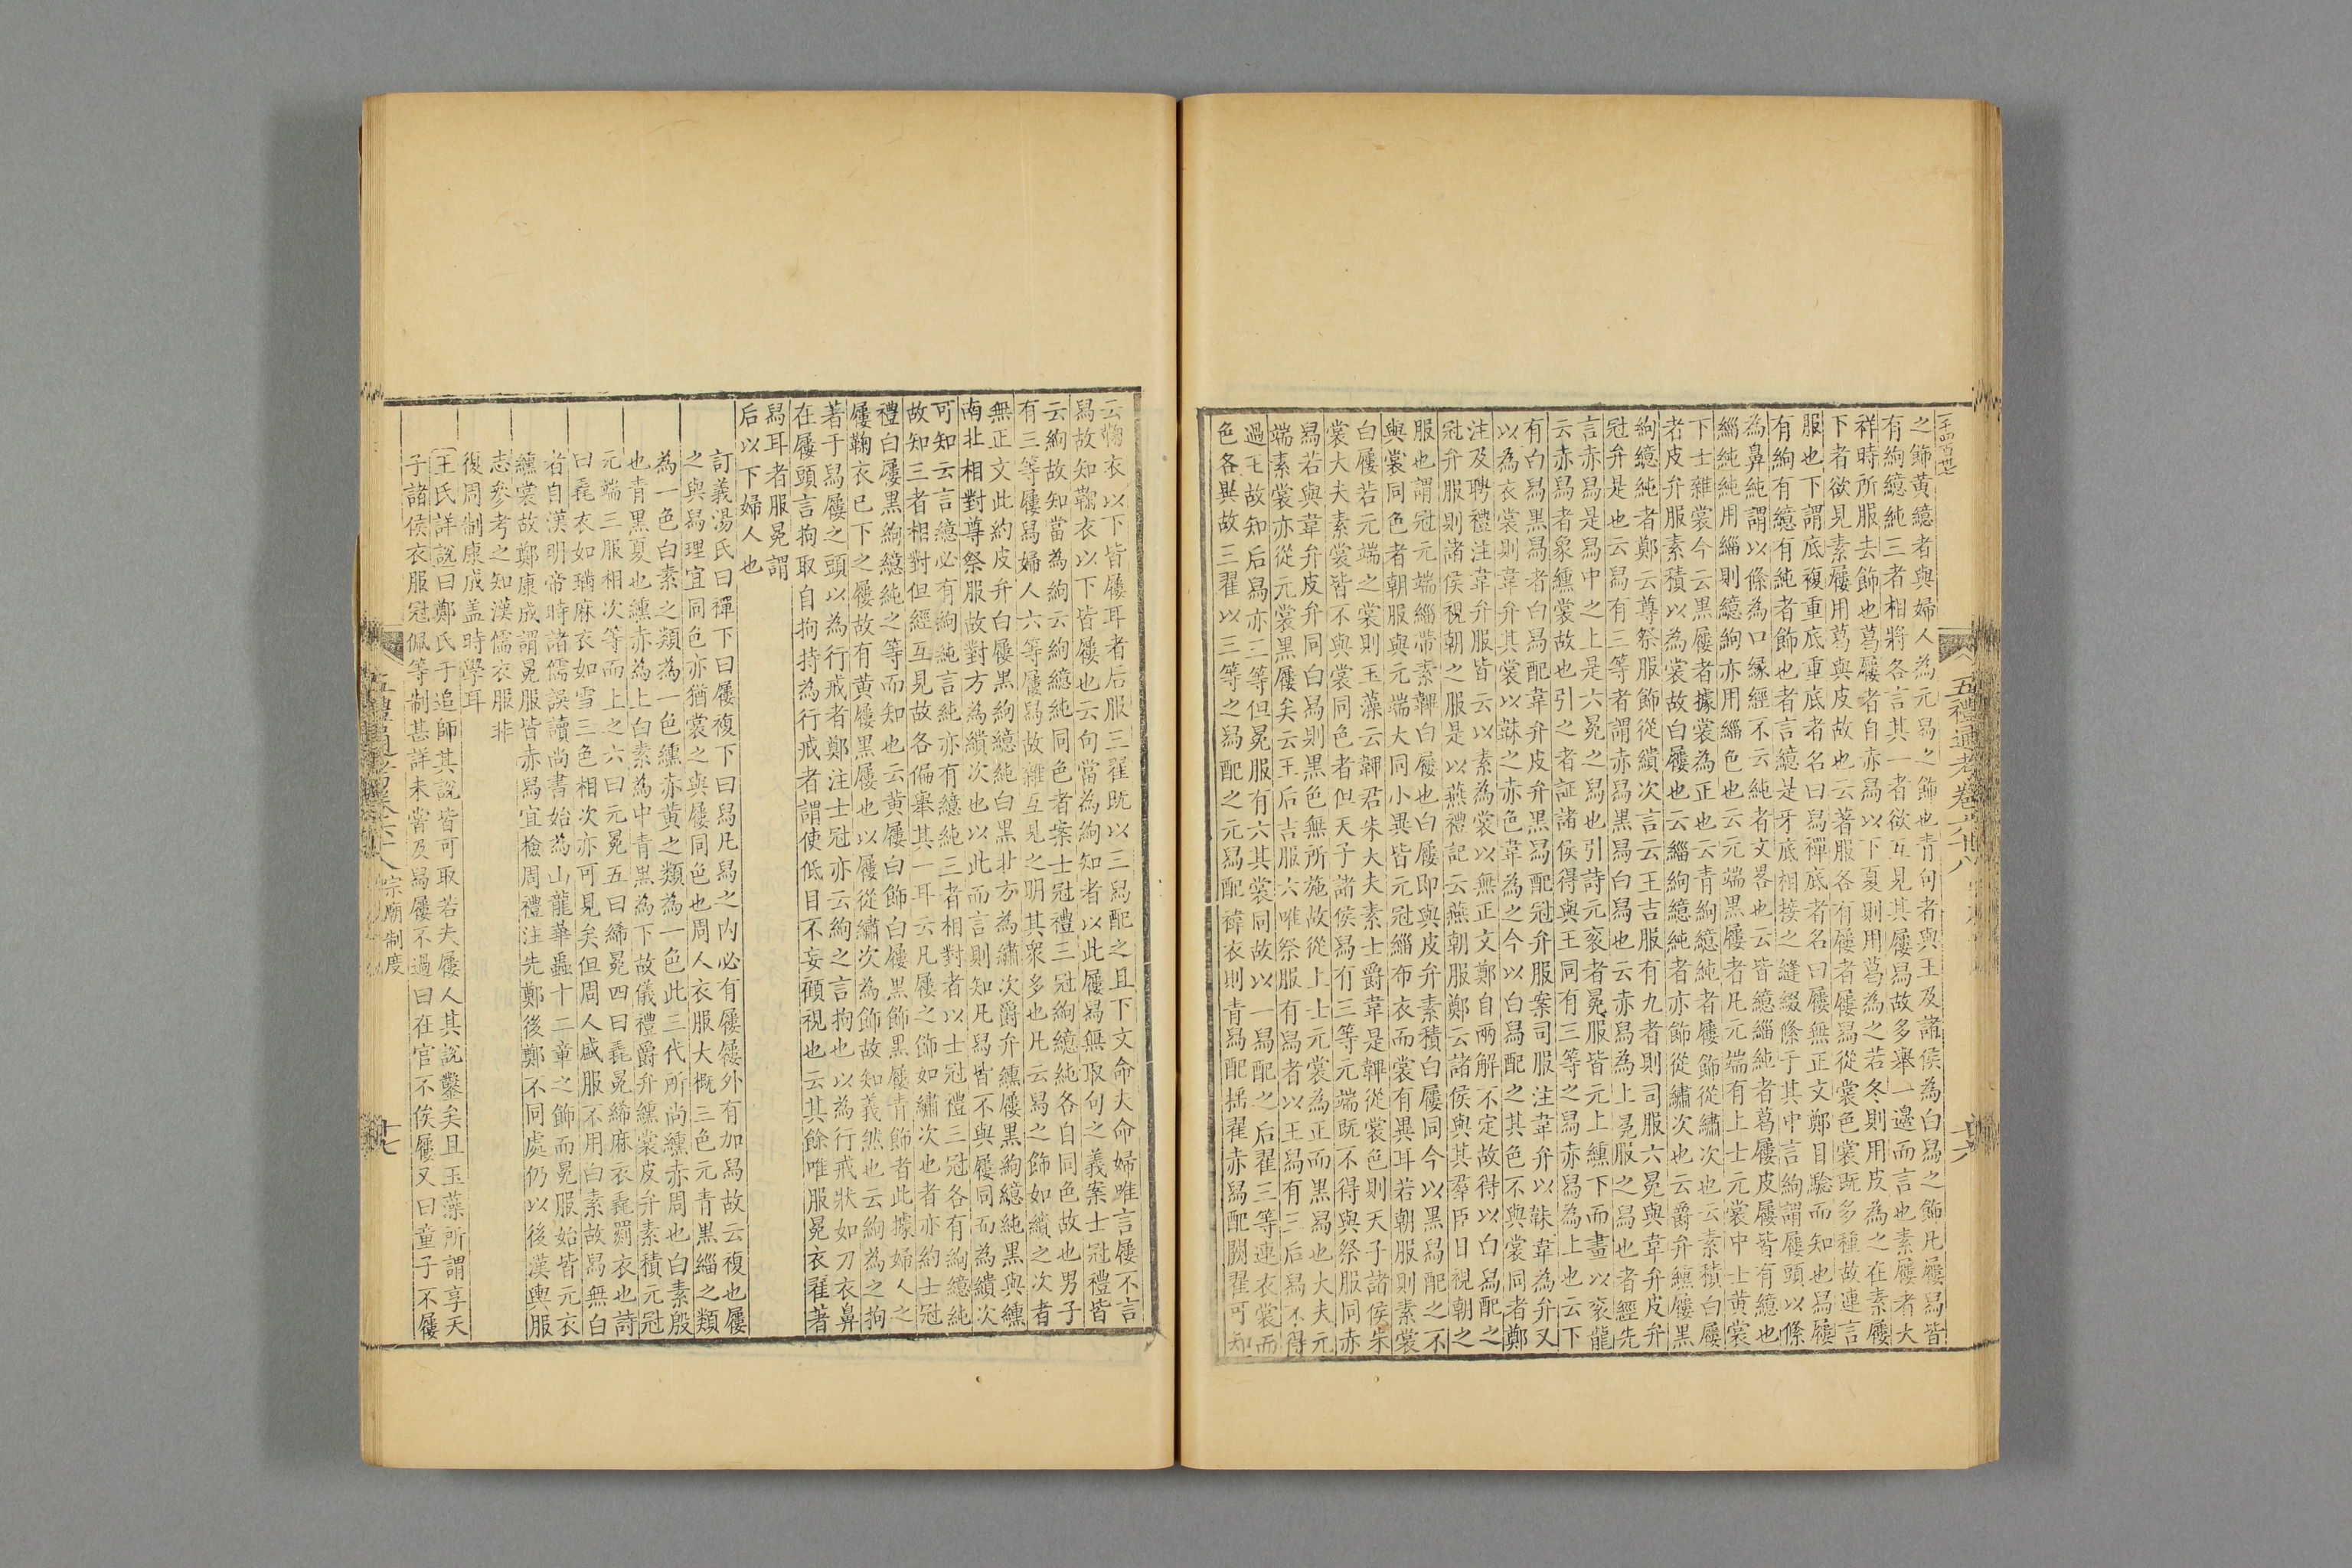 二千四百廿七
之飾黄繶者與婦人為元舄之飾也青句者與王及諸侯為白舄之飾凡屨舄皆
有絇繶純三者相將各言其一者欲互見其屨舄故多舉一邊而言也素屨者大
祥時所服去飾也葛屨者自赤舄以下夏則用葛為之若冬則用皮為之在素屨
下者欲見素屨用葛與皮故也云著服各有屨者屨舄從裳色裳既多種故連言
服也下謂底複重底重底者名曰舄禪底者名曰屨無正文鄭目驗而知也舄屨
有絇有繶有純者飾也者言繶是牙底相接之縫綴絛于其中言絇謂屨頭以絛
為鼻純謂以絛為口緣經不云純者文畧也云皆繶緇純者葛屨皮屨皆有繶也
緇純純用緇則繶絇亦用緇色也云元端黑屨者凡元端有上士元裳中士黄裳
下士雜裳今云黑屨者據裳為正也云青絇繶純者屨飾從繡次也云素積白屨
者皮弁服素積以為裳故白屨也云緇絇繶純者亦飾從繡次也云爵弁纁屨黑
絇繶純者鄭云尊祭服飾從繢次言云王吉服有九者則司服六冕與韋弁皮弁
冠弁是也云舄有三等者謂赤舄黑舄白舄也云赤舄為上冕服之舄也者經先
言赤舄是舄中之上是六冕之舄也引詩元衮者冕服皆元上纁下而畫以衮龍
云赤舄者象纁裳故也引之者証諸侯得與王同有三等之舄赤舄為上也云下
有白舄黑舄者白舄配韋弁皮弁黑舄配冠弁服案司服注韋弁以韎韋為弁又
以為衣裳則韋弁其裳以韎之赤色韋為之今以白舄配之其色不與裳同者鄭
注及聘禮注韋弁服皆云以素為裳以無正文鄭自兩解不定故得以白舄配之
冠弁服則諸侯視朝之服是以燕禮記云燕朝服鄭云諸侯與其羣臣日視朝之
服也謂冠元端緇帶素韠白屨也白屨即與皮弁素積白屨同今以黑舄配之不
與裳同色者朝服與元端大同小異皆元冠緇布衣而裳有異耳若朝服則素裳
白屨若元端之裳則玉藻云韠君朱大夫素士爵韋是韠從裳色則天子諸侯朱
裳大夫素裳皆不與裳同色者但天子諸侯舄有三等元端既不得與祭服同赤
舄若與韋弁皮弁同白舄則黑色無所施故從上士元裳為正而黑舄也大夫元
端素裳亦從元裳黑屨矣云王后吉服六唯祭服有舄者以王舄有三后舄不得
過王故知后舄亦三等但冕服有六其裳同故以一舄配之后翟三等連衣裳而
色各異故三翟以三等之舄配之元舄配褘衣則青舄配揺翟赤舄配闕翟可知
五禮通考卷六十八
十六
云鞠衣以下皆屨耳者后服三翟既以三舄配之且下文命夫命婦唯言屨不言
舄故知鞠衣以下皆屨也云句當為絇知者以此屨舄無取句之義案士冠禮皆
云絇故知當為絇云絇繶純同色者案士冠禮三冠絇繶純各自同色故也男子
有三等屨舄婦人六等屨舄故雜互見之明其衆多也凡云舄之飾如繢之次者
無正文此約皮弁白屨黑絇繶純白黑北方為繡次爵弁纁屨黑絇繶純黑與纁
南北相對尊祭服故對方為繢次也以此而言則知凡舄皆不與屨同而為繢次
可知云言繶必有絇純言純亦有繶純三者相對者以士冠禮三冠各有絇繶純
故知三者相對但經互見故各偏舉其一耳云凡屨之飾如繡次也者亦約士冠
禮白屨黑絇繶純之等而知也云黄屨白飾白屨黑飾黑屨青飾者此據婦人之
屨鞠衣已下之屨故有黄屨黑屨也以屨從繡次為飾故知義然也云絇為之拘
著于舄屨之頭以為行戒者鄭注士冠亦云絇之言拘也以為行戒狀如刀衣鼻
在屨頭言拘取自拘持為行戒者謂使低目不妄顧視也云其餘唯服冕衣翟著
舄耳者服冕謂
后以下婦人也
訂義湯氏曰禪下曰屨複下曰舄凡舄之内必有屨屨外有加舄故云複也屨
之與舄理宜同色亦猶裳之與屨同色也周人衣服大概三色元青黑緇之類
為一色白素之類為一色纁赤黄之類為一色此三代所尚纁赤周也白素殷
也青黑夏也纁赤為上白素為中青黑為下故儀禮爵弁纁裳皮弁素積元冠
元端三服相次等而上之六曰元冕五曰絺冕四曰毳冕絺麻衣毳罽衣也詩
曰毳衣如璊麻衣如雪三色相次亦可見矣但周人盛服不用白素故舄無白
者自漢明帝時諸儒誤讀尚書始為山龍華蟲十二章之飾而冕服始皆元衣
纁裳故鄭康成謂冕服皆赤舄宜檢周禮注先鄭後鄭不同處仍以後漢輿服
志參考之知漢儒衣服非
復周制康成盖時學耳
王氏詳說曰鄭氏于追師其說皆可取若夫屨人其說鑿矣且玉藻所謂享天
子諸侯衣服冠佩等制甚詳未嘗及舄屨不過曰在官不俟屨又曰童子不屨
五禮通考卷六十八 宗廟制度
十七